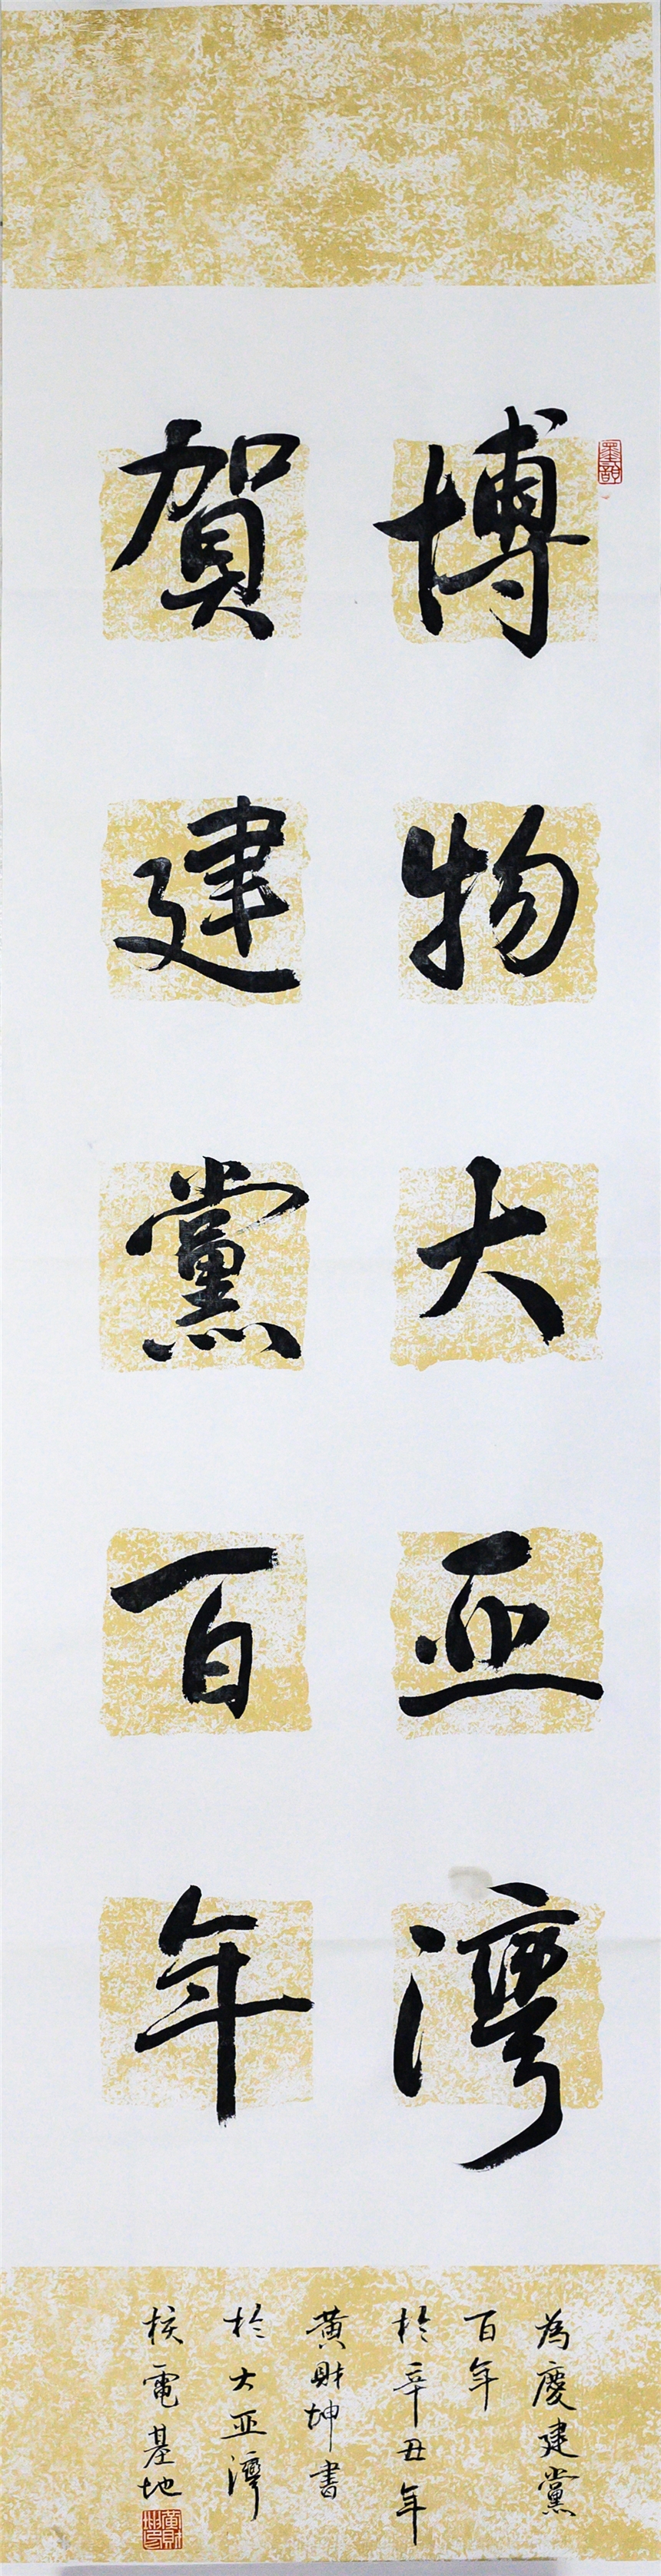 博物大亚灣
賀建黨百年
為慶建黨
百年
於辛丑年
黄財坤書
於大亚灣
核電基地